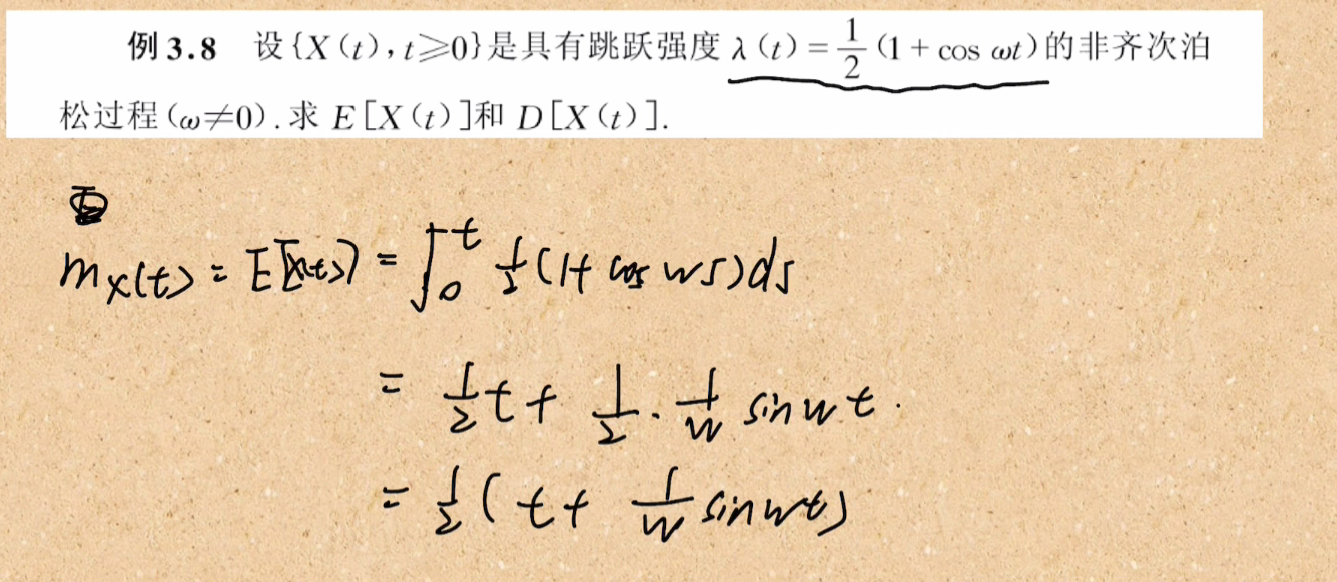 例 3.8 设{X(t),t≥0}是具有跳跃强度 λ(t)=1/2(1+cos ωt)的非齐次泊
松过程(ω≠0).求 E[X(t)]和 D[X(t)].
m_X(t) = E[X(t)] = ∫_0^t 1/2(1+cos ws)ds
= 1/2 t + 1/2 · 1/w sin wt.
= 1/2(t + 1/w sin wt)